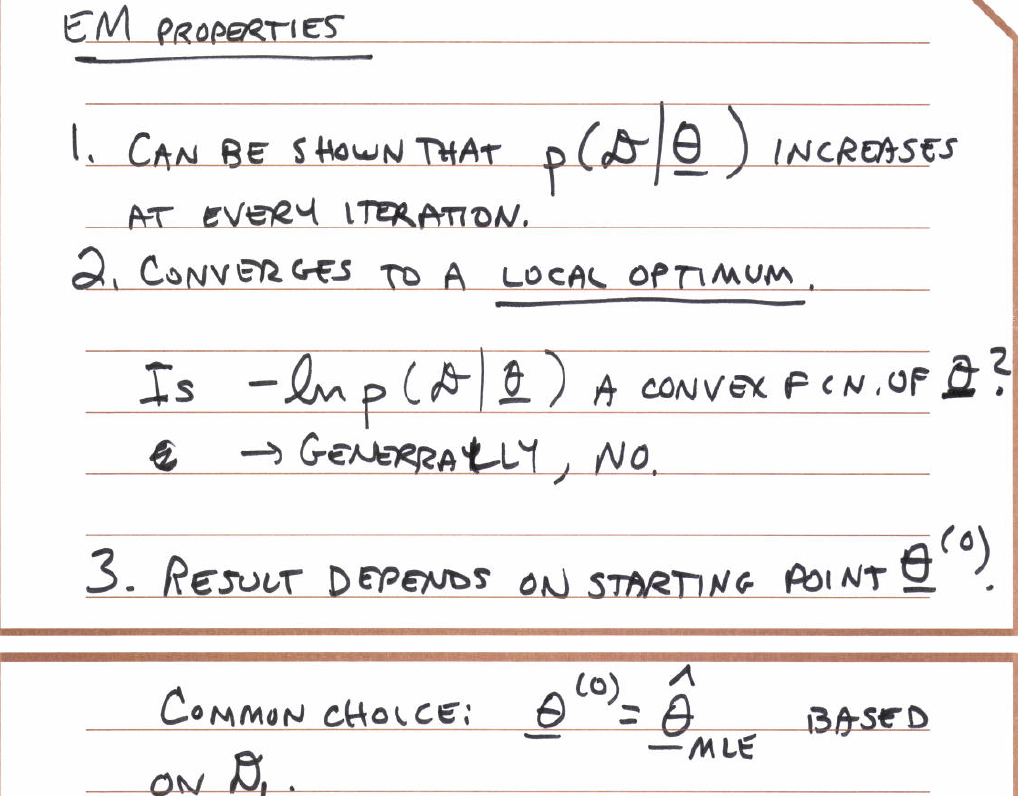 EM PROPERTIES
1. CAN BE SHOWN THAT p(D|θ) INCREASES
AT EVERY ITERATION.
2. CONVERGES TO A LOCAL OPTIMUM.
Is -ln p(D|θ) A CONVEX FCN. OF θ?
→ GENERRALLY, NO.
3. RESULT DEPENDS ON STARTING POINT θ^(0).
COMMON CHOICE: θ^(0) = θ̂_MLE BASED
ON D₁.